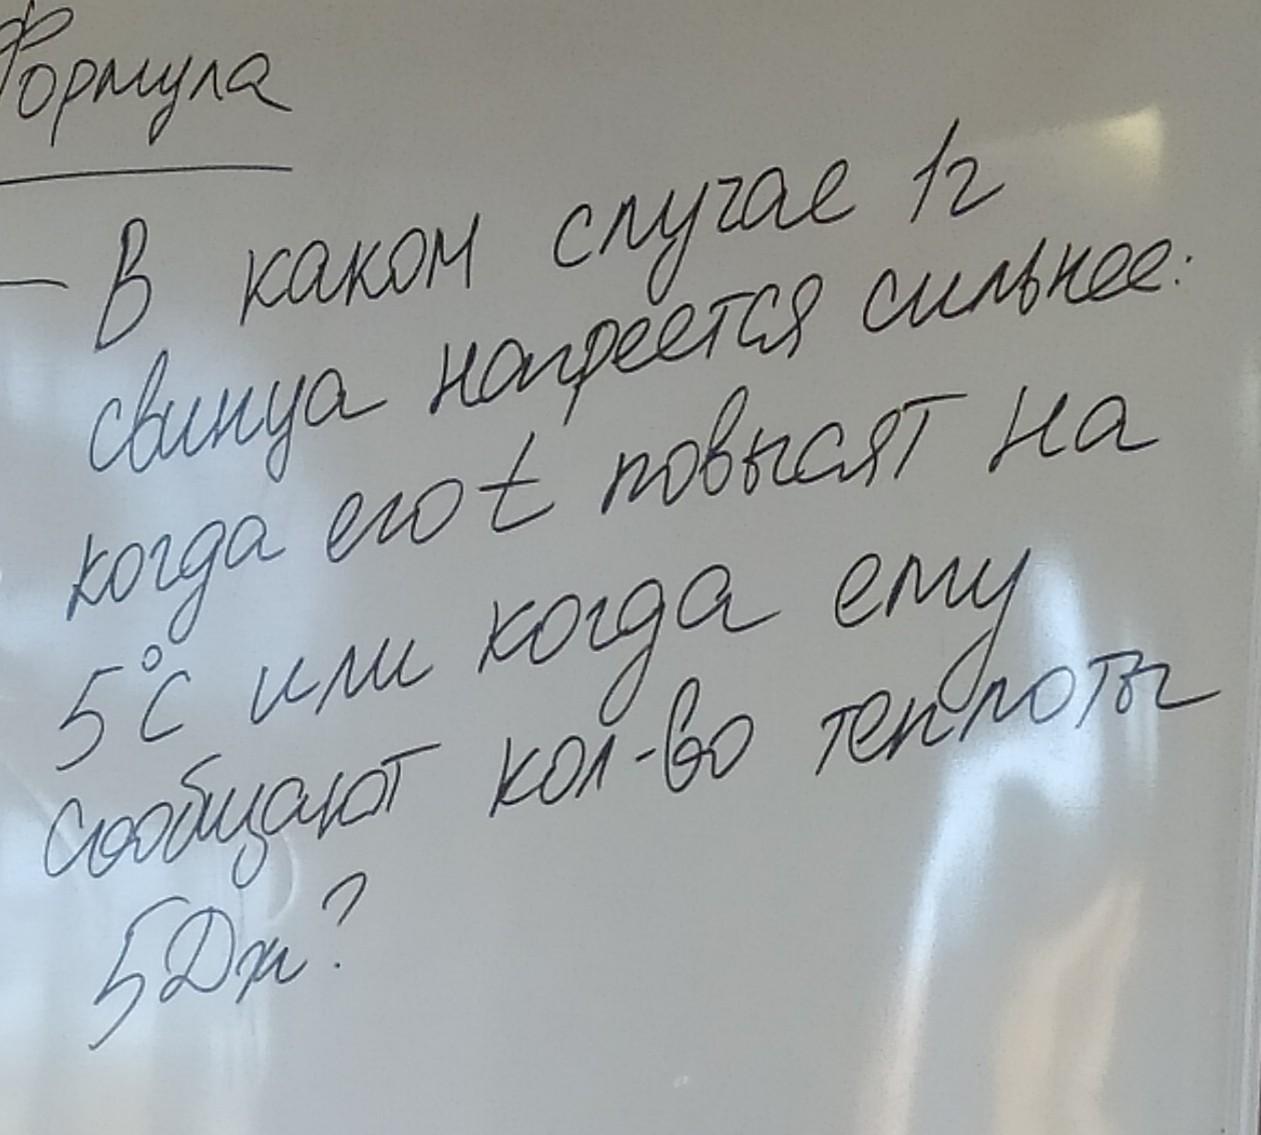 Формула
— В каком случае 1г
свинца нагреется сильнее:
когда его t повысят на
5°С или когда ему
сообщают кол-во теплоты
5Дж?